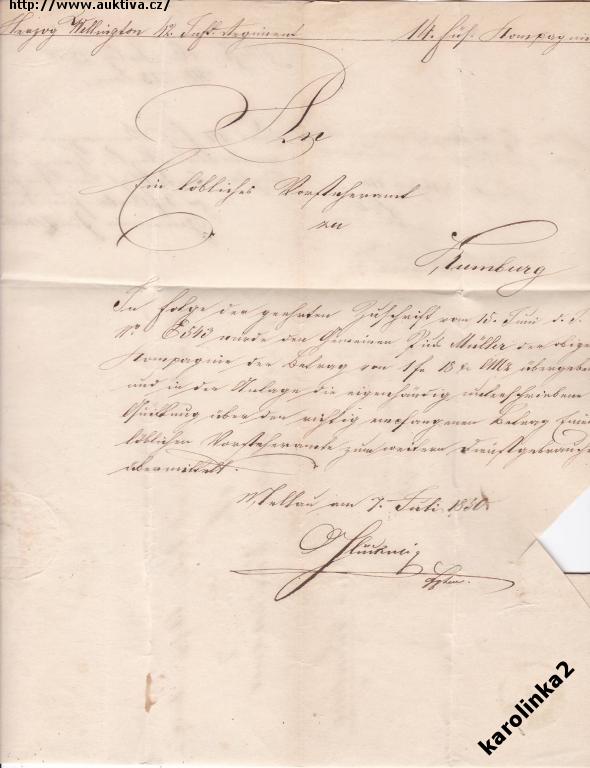 http://www.auktiva.cz/
Herzog Wellington 42. Inft. Regiment 14. Kompagnie
An
Ein löbliches Vorsteheramt
zu
Rumburg
In Folge der geehrten Zuschrift vom 15. Juni d. J.
No E 543 wurde den Gemeinen Müller der obige
Kompagnie der Betrag von 1 f 18 x CMz übergeben
und in der Anlage die eigenhändig unterschriebene
Quittung über den richtig empfangenen Betrag Eine
löblichen Vorsteheramte zum weitern Dienstgebrauche
übermittelt.
am 7. Juli 1850
karolinka2